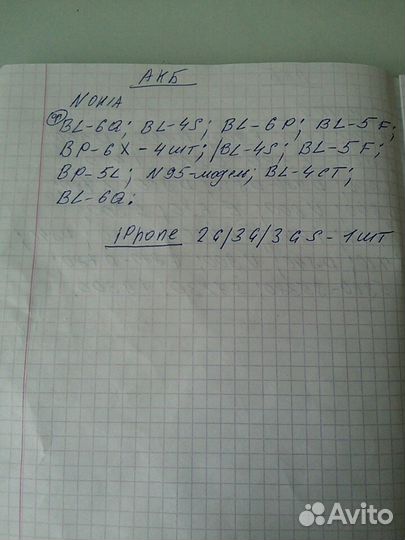 АКБ
NOKIA
BL-6Q; BL-4S; BL-6P; BL-5F;
BP-6X - 4шт; BL-4S; BL-5F;
BP-5L; N95-модел; BL-4CT;
BL-6Q;
iPhone 2G/3G/3GS - 1шт
Avito